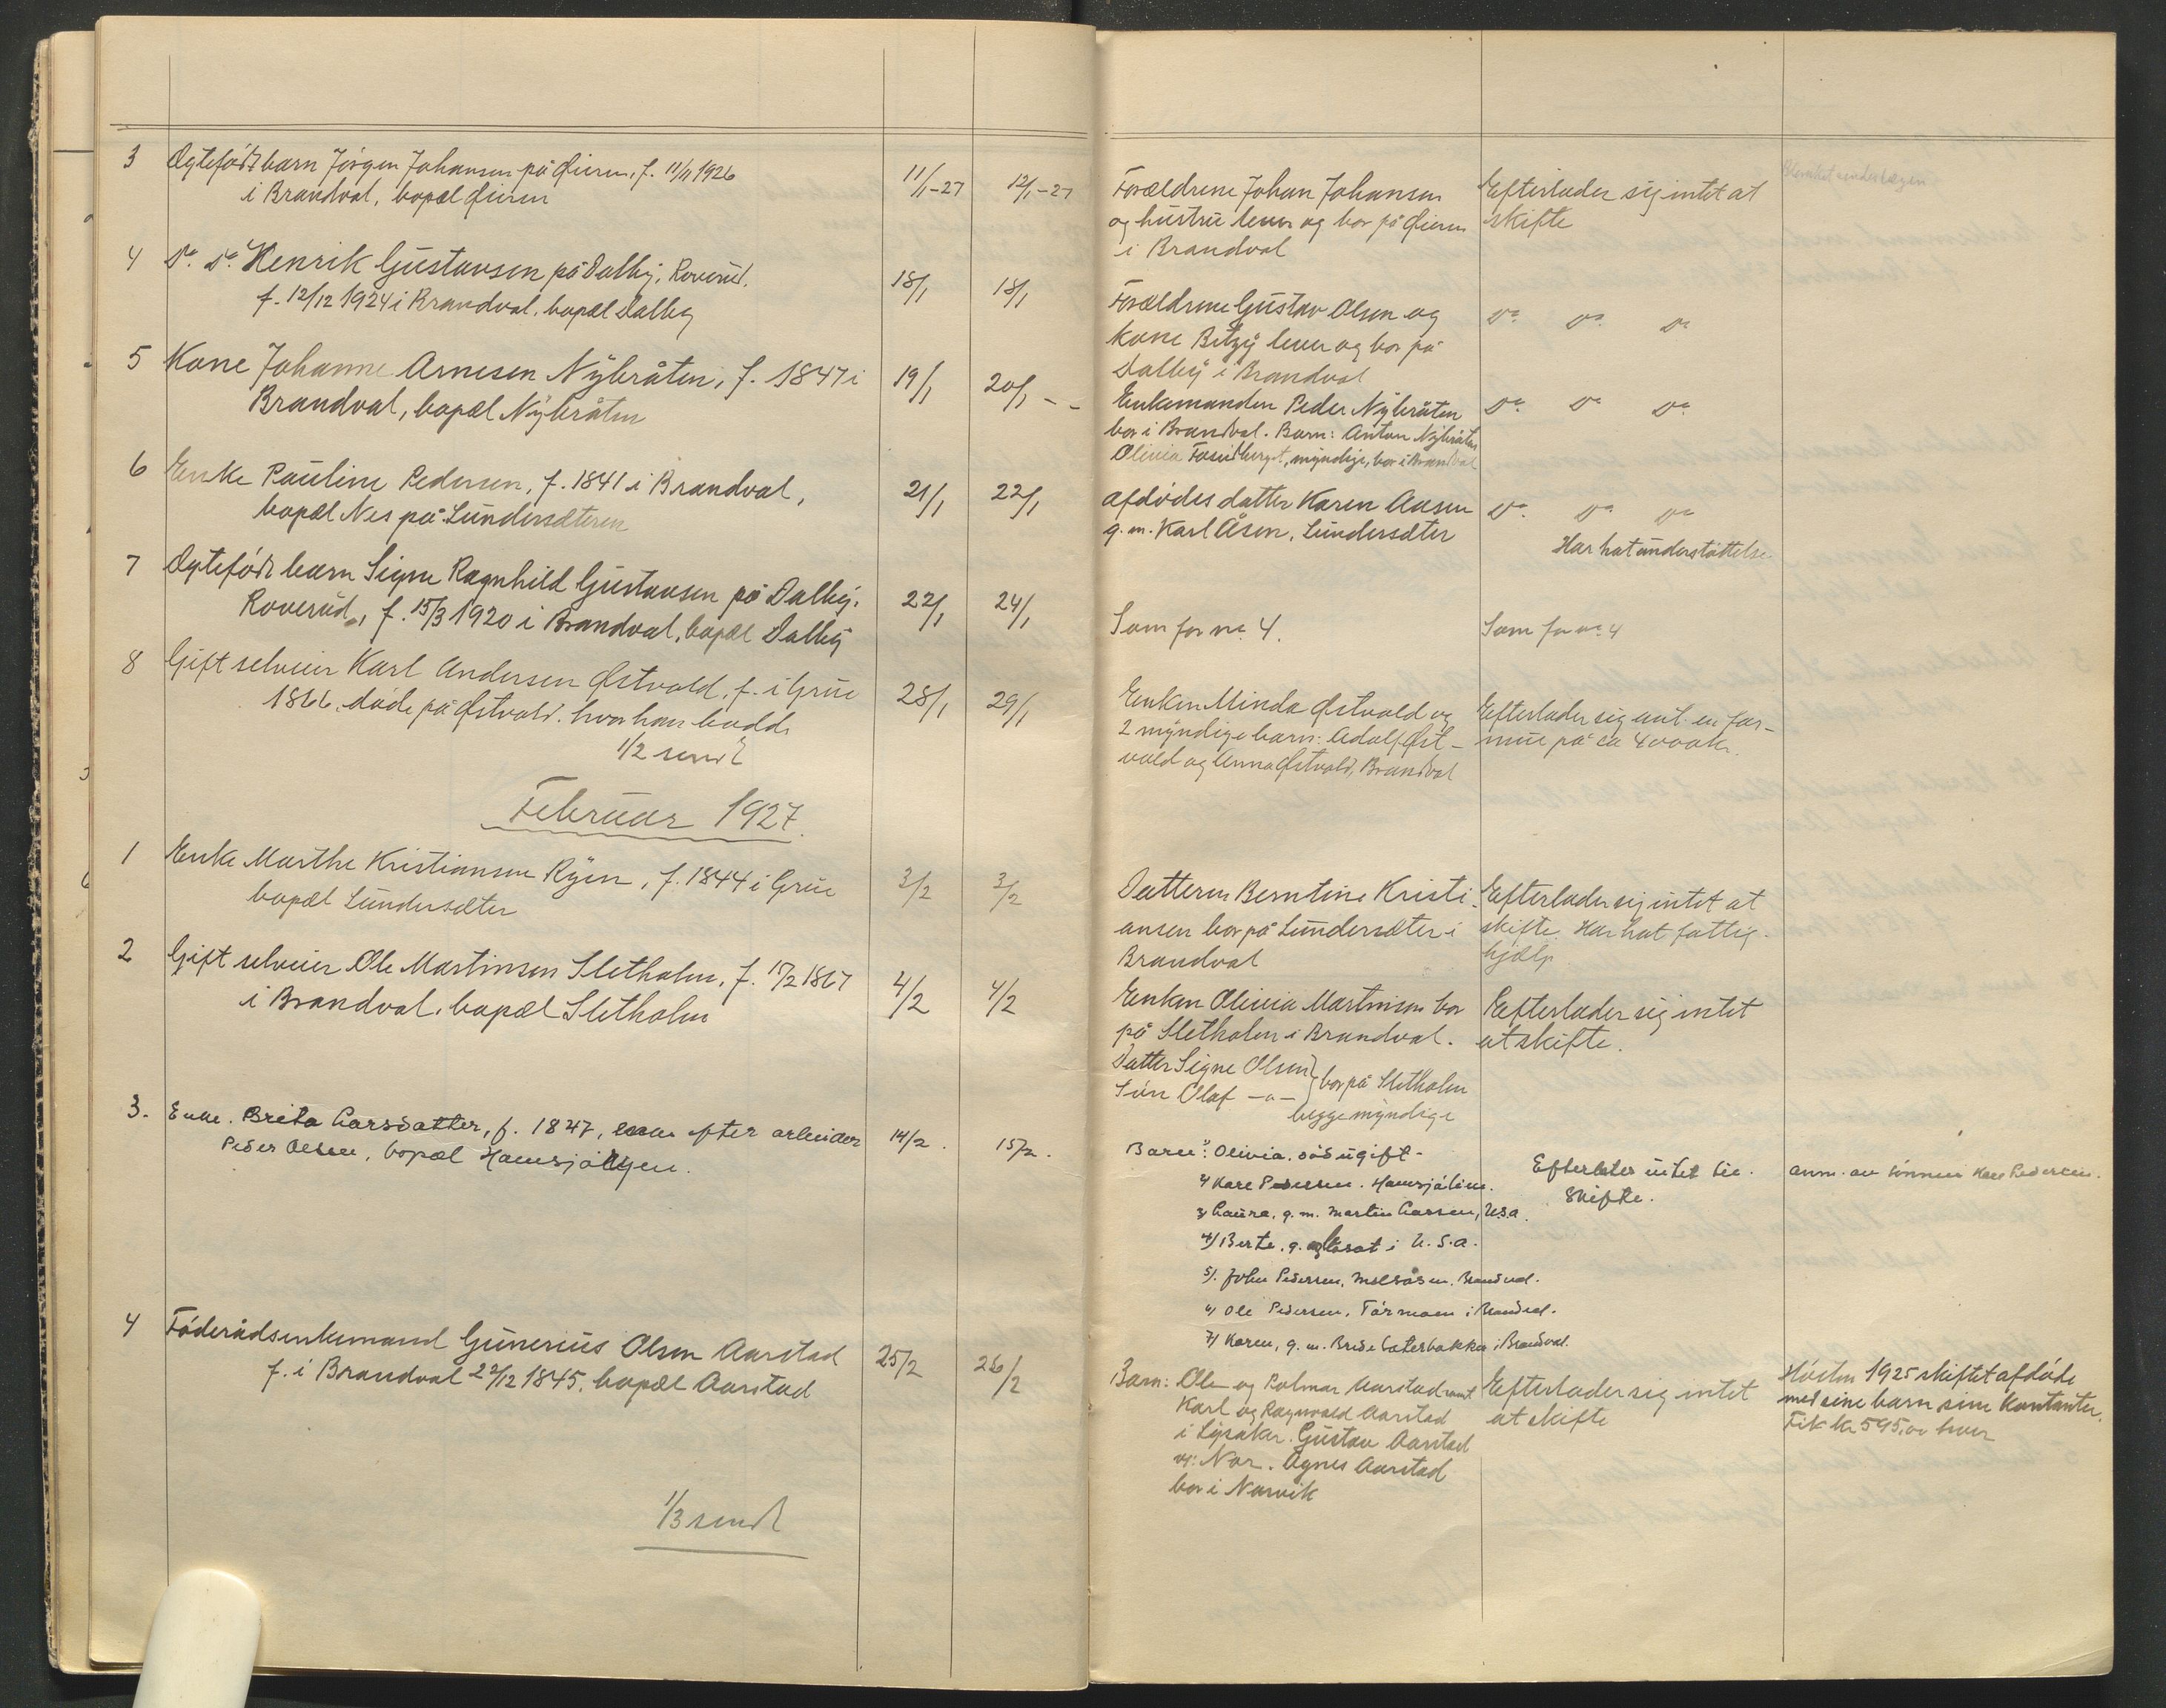 3 Ægtefødt barn Jörgen Johansen på Øieren, f. 11/11 1926 11/1-27 12/1-27
i Brandval, bopæl Øieren
Forældrene Johan Johansen Efterlader sig intet at
og hustru lever og bor på Øieren skifte
i Brandval
4 Do. Do. Henrik Gustavsen på Dalby, Roverud, 18/1 18/1
f. 12/12 1924 i Brandval, bopæl Dalby
Forældrene Gustav Olsen og Do. Do. Do
kone Betzy lever og bor på
Dalby i Brandval
5 Kone Johanne Arnesen Nybråten, f. 1847 i 19/1 20/1 - -
Brandval, bopæl Nybråten
Enkemanden Peder Nybråten Do. Do Do.
bor i Brandval. Barn: Anton Nybråten
Olivia, myndige, bor i Brandval
6 Enke Pauline Pedersen, f. 1841 i Brandval, 21/1 22/1
bopæl Nes på Lundersæteren
afdödes datter Karen Aasen Do. Do. Do
g. m. Karl Åsen, Lundersæter Har hat understöttelse
7 Ægtefødt barn Signe Ragnhild Gustavsen på Dalby, 22/1 24/1
Roverud, f. 15/3 1920 i Brandval, bopæl Dalby
Som for nr. 4. Som for nr. 4
8 Gift selveier Karl Andersen Østvold, f. i Grue 28/1 29/1
1866, döde på Østvold, hvor han bodde
1/2 sendt
Enken Minda Østvold og Efterlader sig ant. en for-
2 myndige barn: Adolf Øst- mue på ca 4000 kr.
vold og Anna Østvold, Brandval
Februar 1927.
1 Enke Marthe Kristiansen Ryen, f. 1844 i Grue 3/2 3/2
bopæl Lundersæter
Datteren Berntine Kristi- Efterlader sig intet at
ansen bor på Lundersæter i skifte. Har hat fattig-
Brandval hjælp
2 Gift selveier Ole Martinsen Sletholm, f. 17/2 1867 4/2 4/2
i Brandval, bopæl Sletholm
Enken Olivia Martinsen bor Efterlader sig intet
på Sletholm i Brandval. at skifte.
Datter Signe Olsen } bor på Sletholm
Sön Olaf -"- begge myndige
3. Enke. Brita Larsdatter, f. 1847, enke efter arbeider 14/2. 15/2.
Peder Olsen, bopæl
Barn: Olivia, död ugift. Efterlater intet til anm. av sönnen Kare Pedersen.
2/ Kare Pedersen. skifte.
3/ Laura, g. m. Martin Larsen, U.S.a.
4/ Berte, g. og bosat i U.S.a.
5/. John Pedersen, Brandval.
6/ Ole Pedersen, i Brandval.
7/ Karen, g. m. i Brandval.
4 Föderådsenkemand Gunerius Olsen Aarstad 25/2 26/2
f. i Brandval 22/12 1845, bopæl Aarstad
Barn: Ole og Palmar Aarstad samt Efterlader sig intet Hösten 1925 skiftet afdöde
Karl og Ragnvald Aarstad at skifte med sine barn sine kontanter.
i Lysaker. Gustav Aarstad Fik kr 595,00 hver
Nor. Agnes Aarstad
bor i Narvik
1/3 sendt